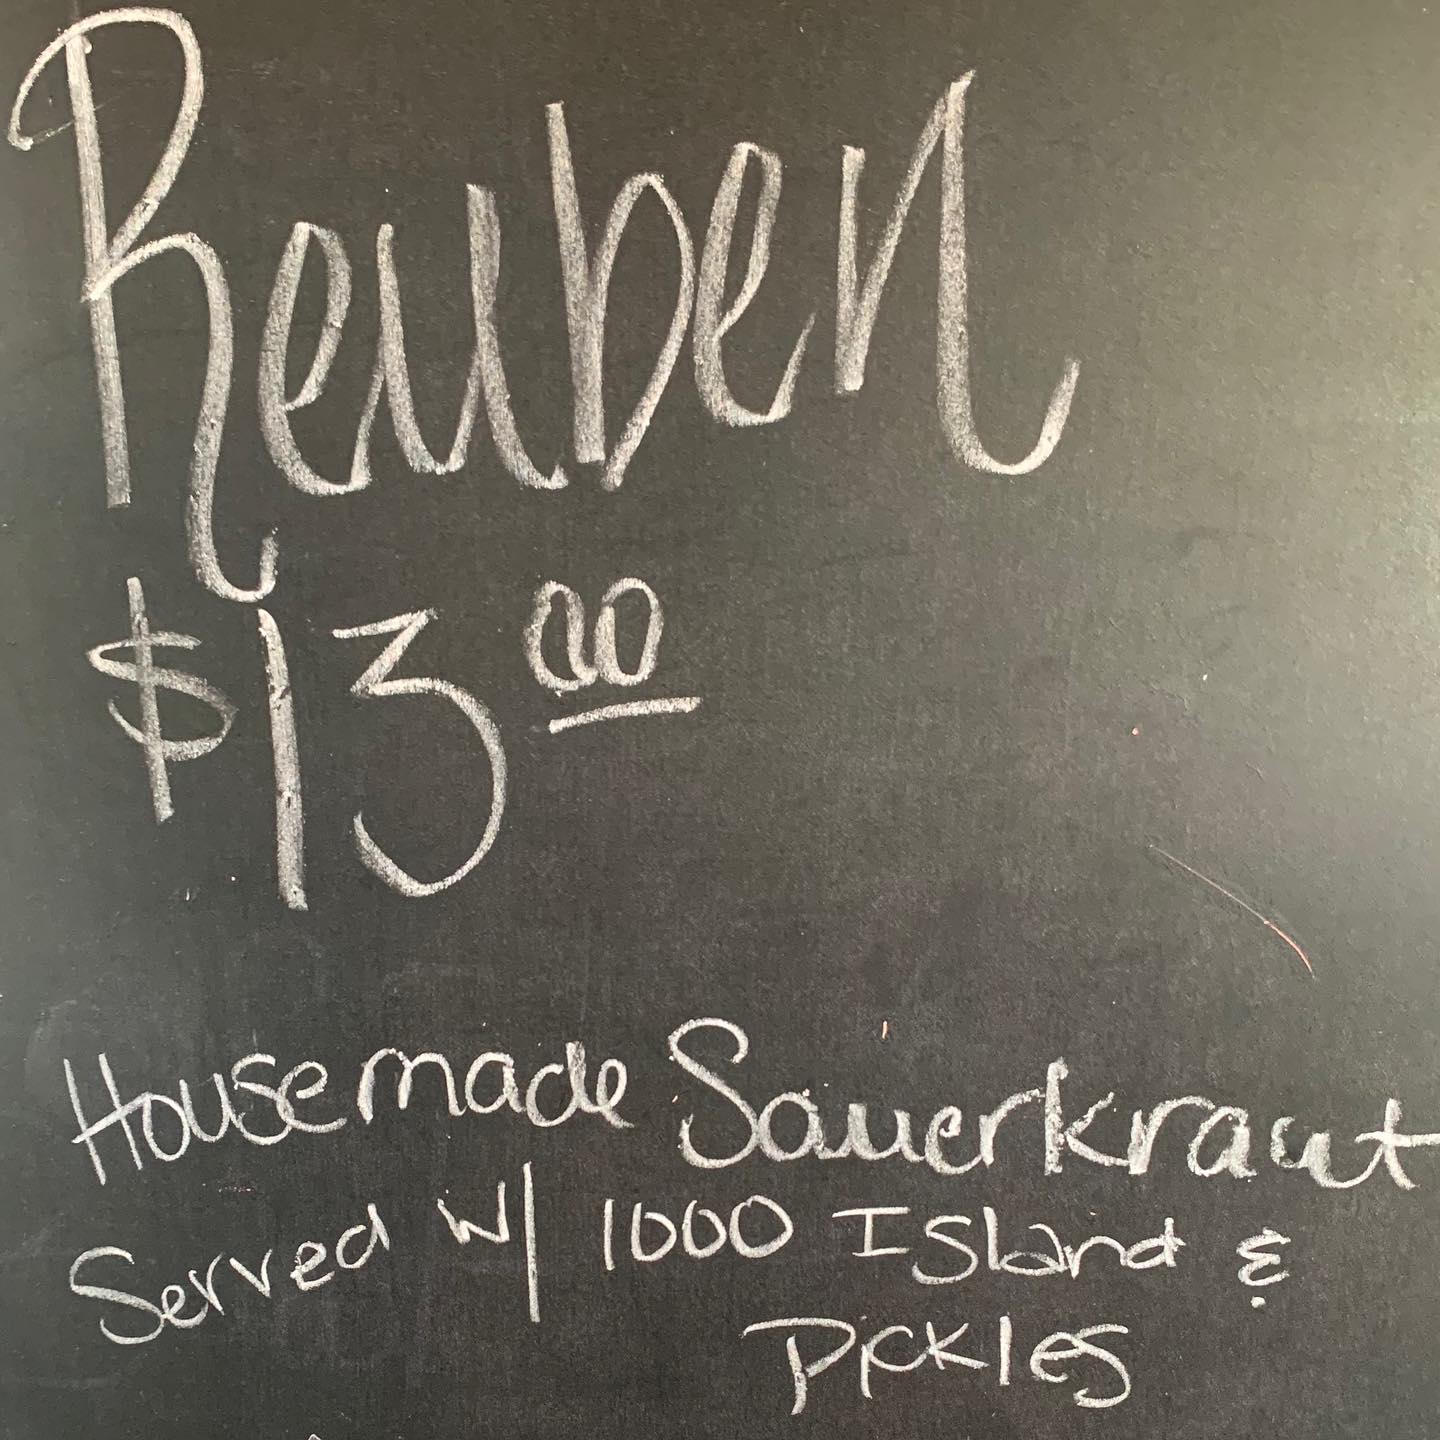 Reuben
$13.00
Housemade Sauerkraut
Served w/ 1000 Island &
Pickles